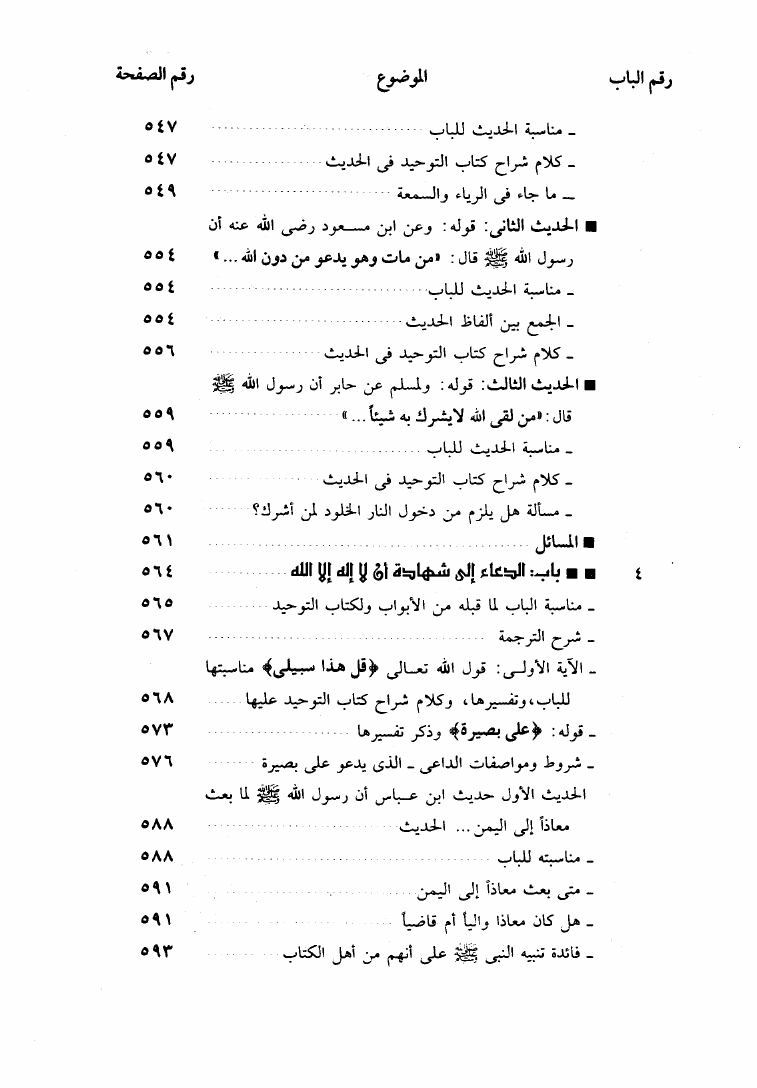 رقم الباب الموضوع رقم الصفحة
ـ مناسبة الحديث للباب ٥٤٧
ـ كلام شراح كتاب التوحيد فى الحديث ٥٤٧
ـ ما جاء فى الرياء والسمعة ٥٤٩
■ الحديث الثانى: قوله: وعن ابن مسعود رضى الله عنه أن
رسول الله ﷺ قال: «من مات وهو يدعو من دون الله ...» ٥٥٤
ـ مناسبة الحديث للباب ٥٥٤
ـ الجمع بين ألفاظ الحديث ٥٥٤
ـ كلام شراح كتاب التوحيد فى الحديث ٥٥٦
■ الحديث الثالث: قوله: ولمسلم عن حابر أن رسول الله ﷺ
قال: «من لقى الله لايشرك به شيئاً ...» ٥٥٩
ـ مناسبة الحديث للباب ٥٥٩
ـ كلام شراح كتاب التوحيد فى الحديث ٥٦٠
ـ مسألة هل يلزم من دخول النار الخلود لمن أشرك؟ ٥٦٠
■ المسائل ٥٦١
٤ ■ ■ باب: الدعاء إلى شهادة أن لا إله إلا الله ٥٦٤
ـ مناسبة الباب لما قبله من الأبواب ولكتاب التوحيد ٥٦٥
ـ شرح الترجمة ٥٦٧
ـ الآية الأولـى: قول الله تعـالى ﴿قل هذا سبيلى﴾ مناسبتها
للباب،وتفسيرها، وكلام شراح كتاب التوحيد عليها ٥٦٨
ـ قوله: ﴿على بصيرة﴾ وذكر تفسيرها ٥٧٣
ـ شروط ومواصفات الداعى ـ الذى يدعو على بصيرة ٥٧٦
الحديث الأول حديث ابن عـباس أن رسول الله ﷺ لما بعث
معاذاً إلى اليمن ... الحديث ٥٨٨
ـ مناسبته للباب ٥٨٨
ـ متى بعث معاذاً إلى اليمن ٥٩١
ـ هل كان معاذا والياً أم قاضياً ٥٩١
ـ فائدة تنبيه النبى ﷺ على أنهم من أهل الكتاب ٥٩٣